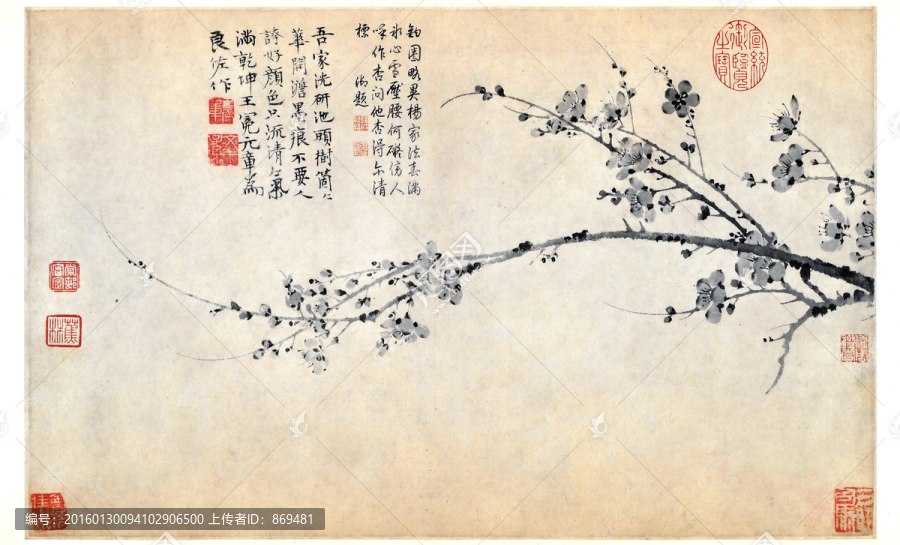 鈎圈略異楊家法春滿
冰心雪壓腰何礙傍人
呼作杏問他杏得尔清
標
御題
吾家洗研池頭樹箇〻
華開澹墨痕不要人
誇好顏色只流清氣
滿乾坤王冕元章為
良佐作
宣統御覽之寶
蕉林
编号:20160130094102906500 上传者ID:869481